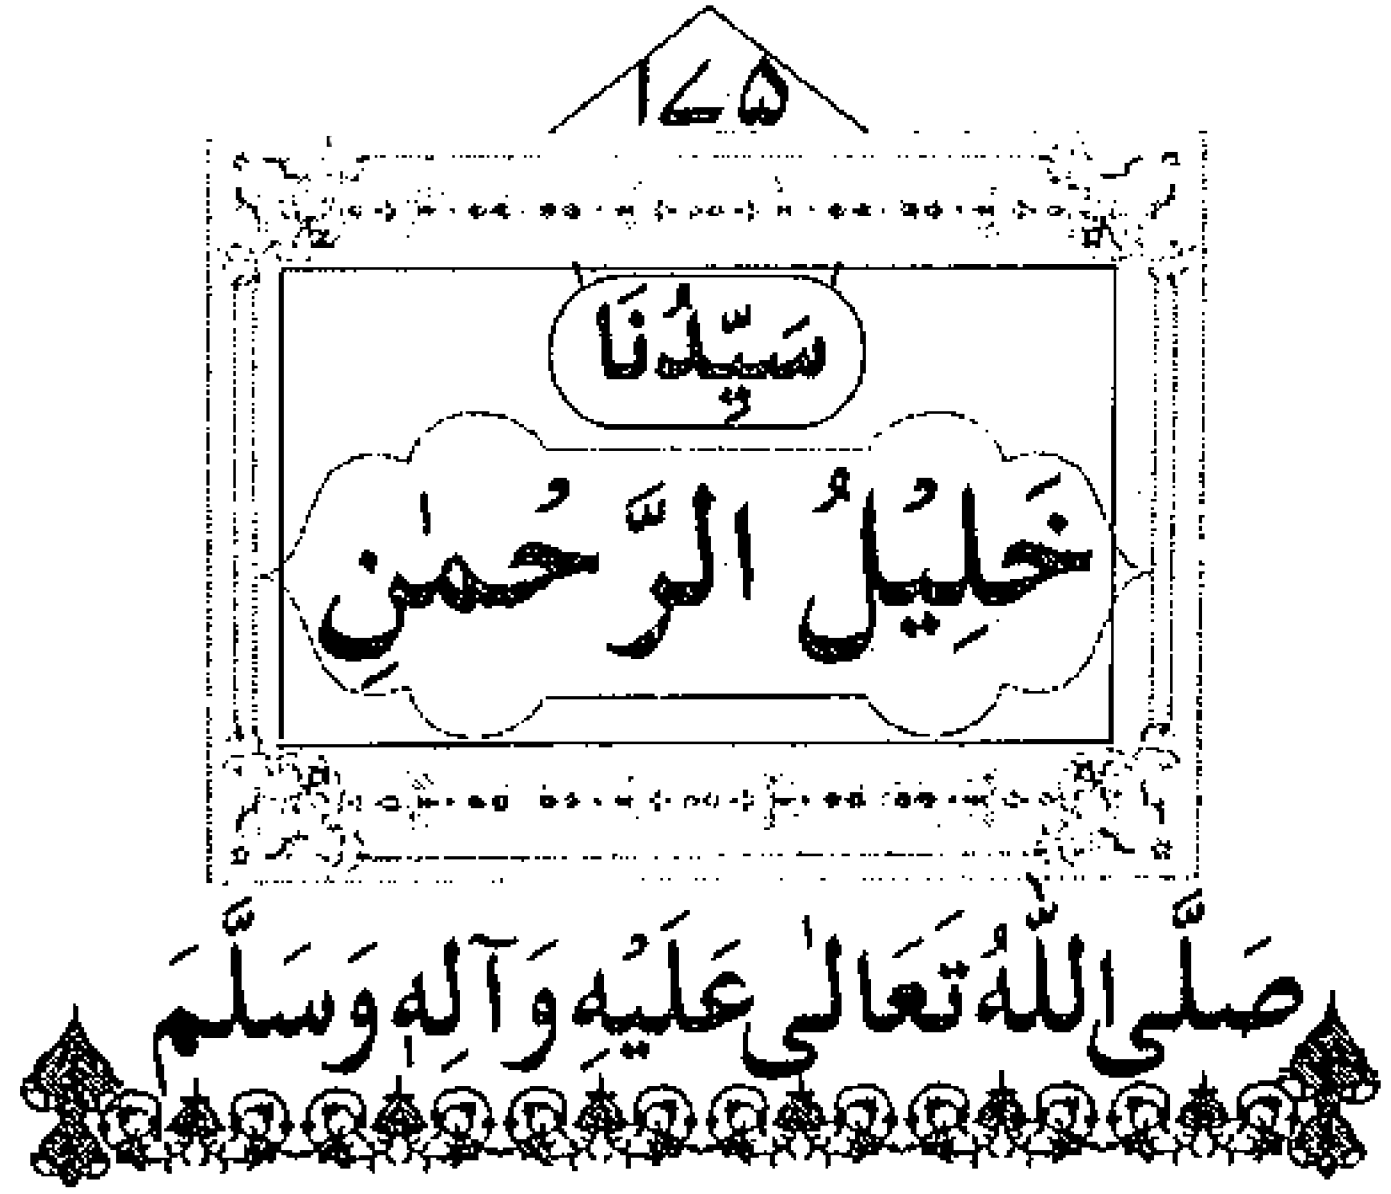 ۱۷۵
سَيِّدُنَا
خَلِيْلُ الرَّحْمٰنِ
صَلَّى اللّٰهُ تَعَالٰى عَلَيْهِ وَآلِهٖ وَسَلَّمَ